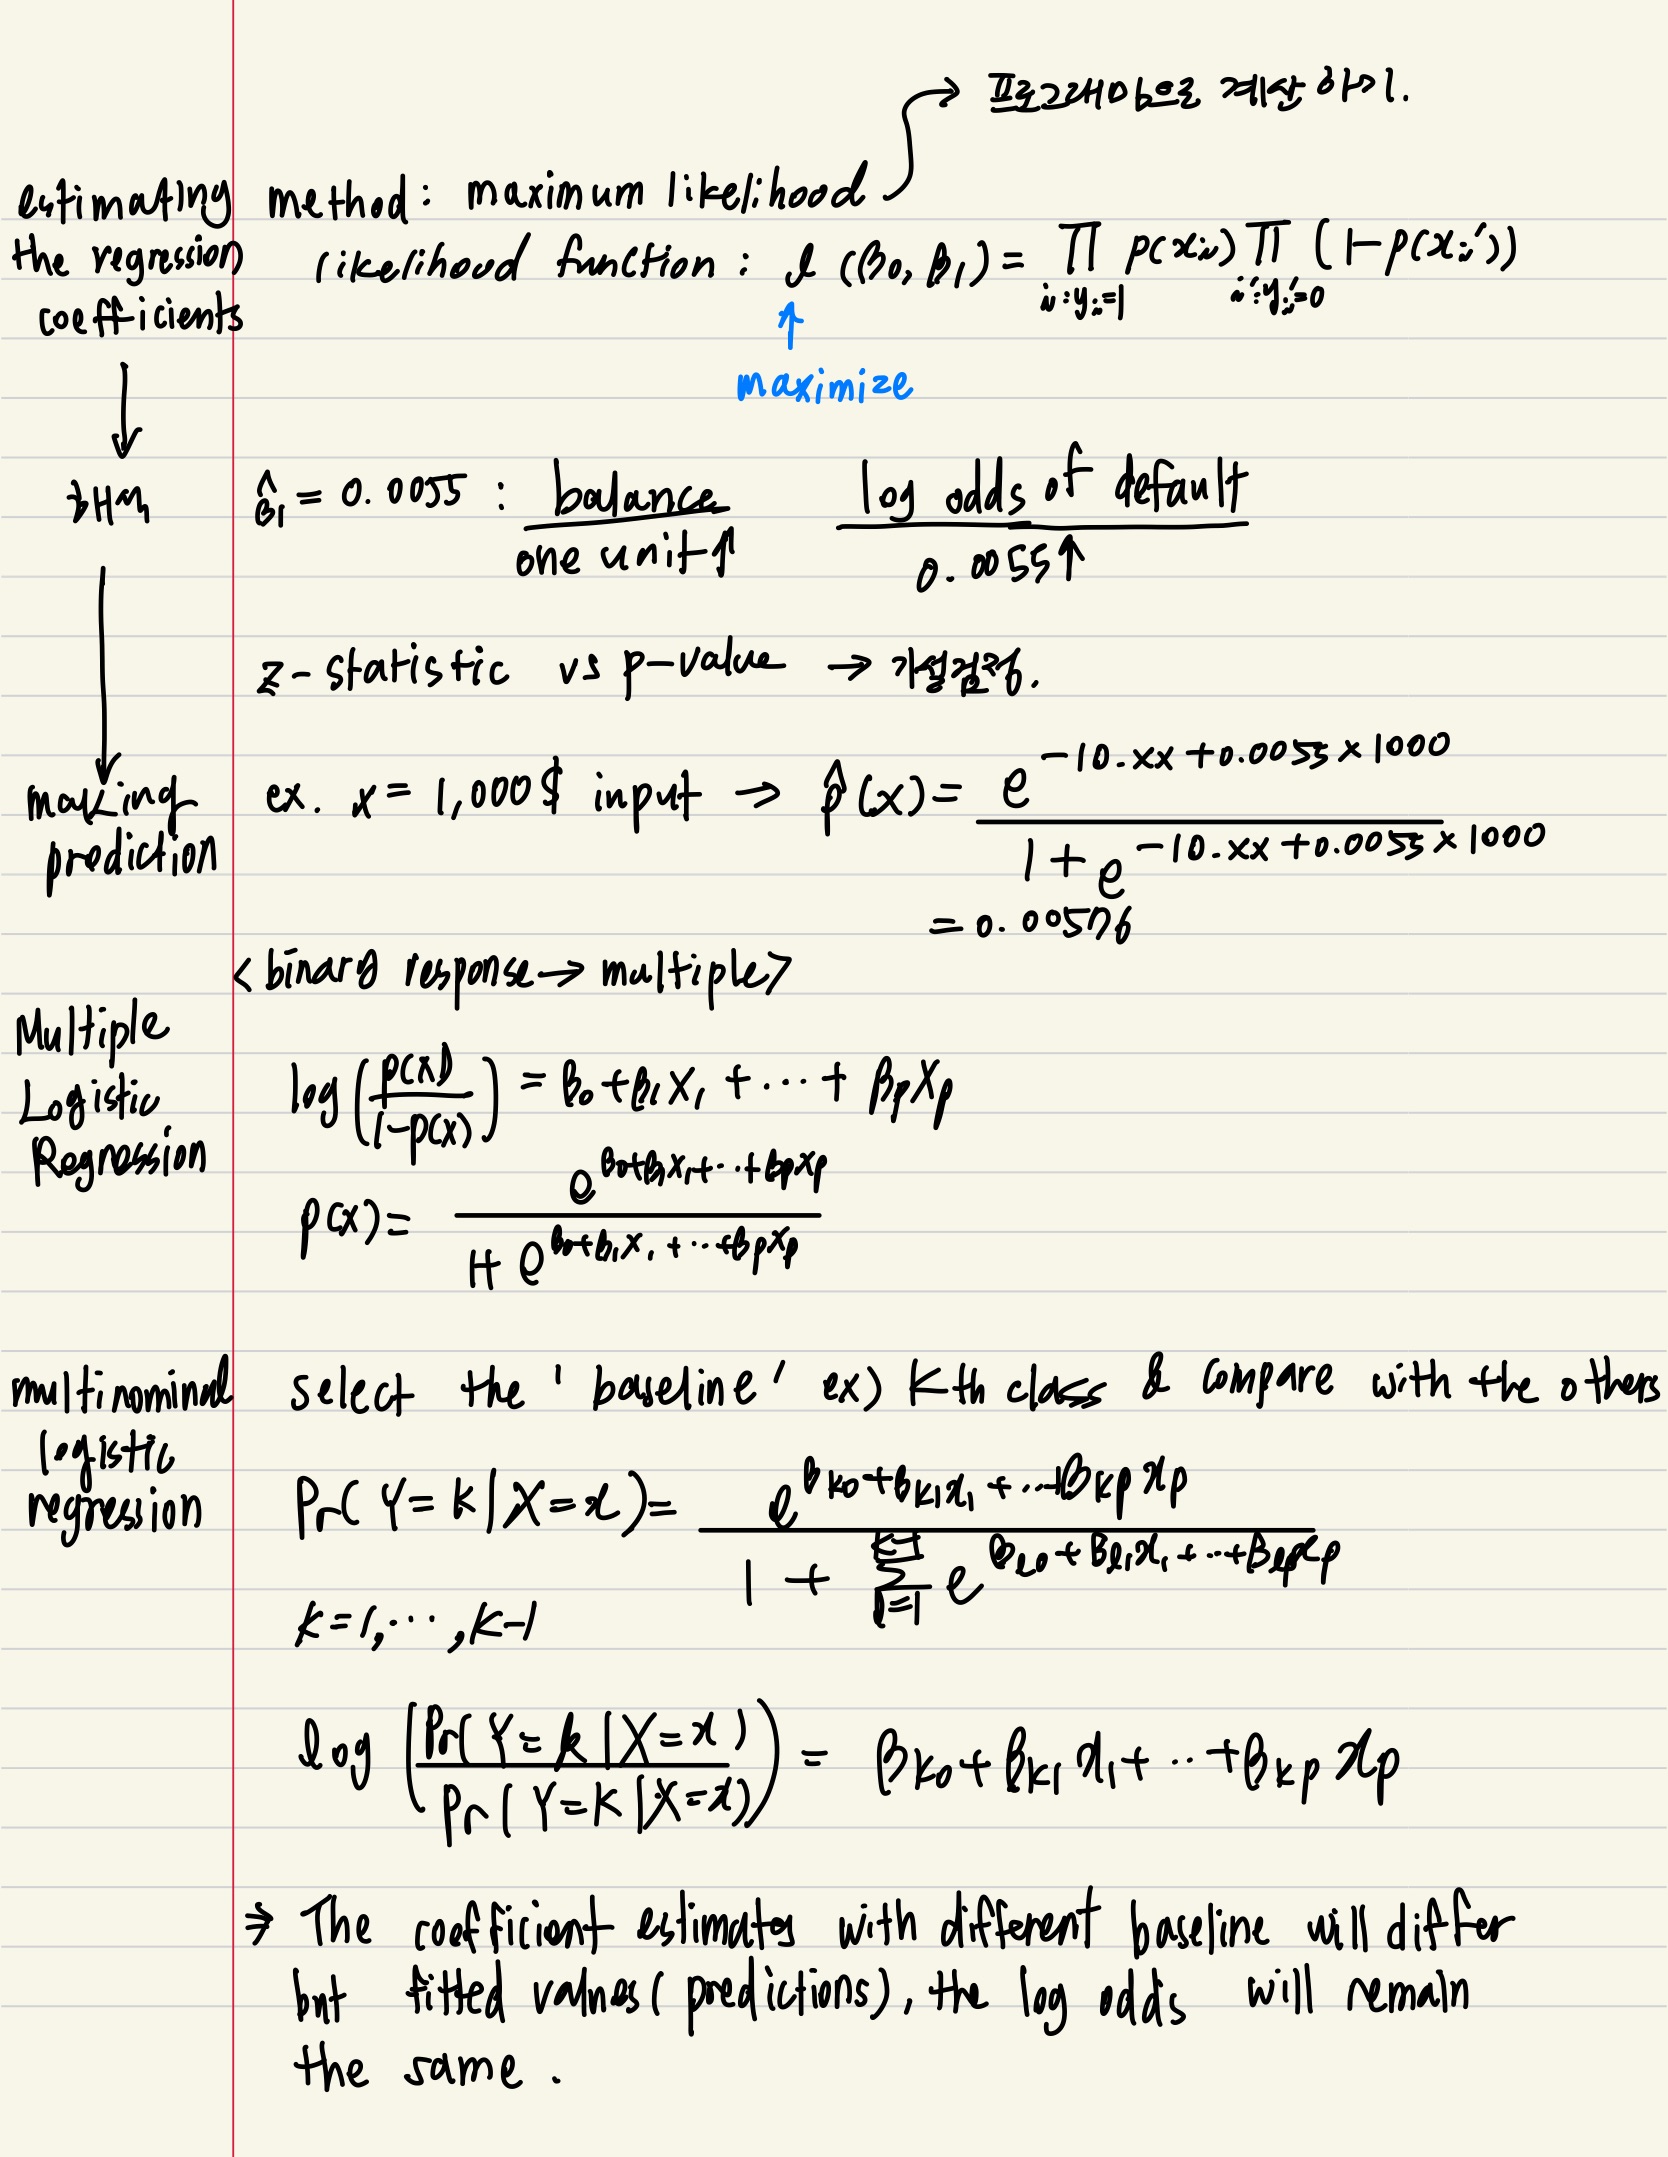 → 프로그래밍으로 계산하기.
estimating the regression coefficients
method: maximum likelihood
likelihood function: ℓ(β₀, β₁) = ∏_{i:yᵢ=1} p(xᵢ) ∏_{i':yᵢ'=0} (1-p(xᵢ'))
↑
maximize
↓
해석
β̂₁ = 0.0055 : balance / one unit↑ log odds of default / 0.0055↑
z-statistic vs p-value → 가설검정.
↓
making prediction
ex. x = 1,000$ input → p̂(x) = e^{-10.xx+0.0055×1000} / 1+e^{-10.xx+0.0055×1000}
= 0.00576
<binary response → multiple>
Multiple Logistic Regression
log(p(x)/1-p(x)) = β₀+β₁X₁+⋯+βpXp
p(x) = e^{β₀+β₁X₁+⋯+βpXp} / 1+e^{β₀+β₁X₁+⋯+βpXp}
multinominal logistic regression
select the 'baseline' ex) Kth class & compare with the others
Pr(Y=k|X=x) = e^{βk0+βk1x₁+⋯+βkpxp} / 1+∑_{l=1}^{K-1} e^{βl0+βl1x₁+⋯+βlpxp}
k=1,⋯,K-1
log(Pr(Y=k|X=x) / Pr(Y=K|X=x)) = βk0+βk1x₁+⋯+βkpxp
⇒ The coefficient estimates with different baseline will differ
but fitted values(predictions), the log odds will remain
the same.